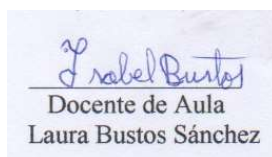 Isabel Bustos
Docente de Aula
Laura Bustos Sánchez